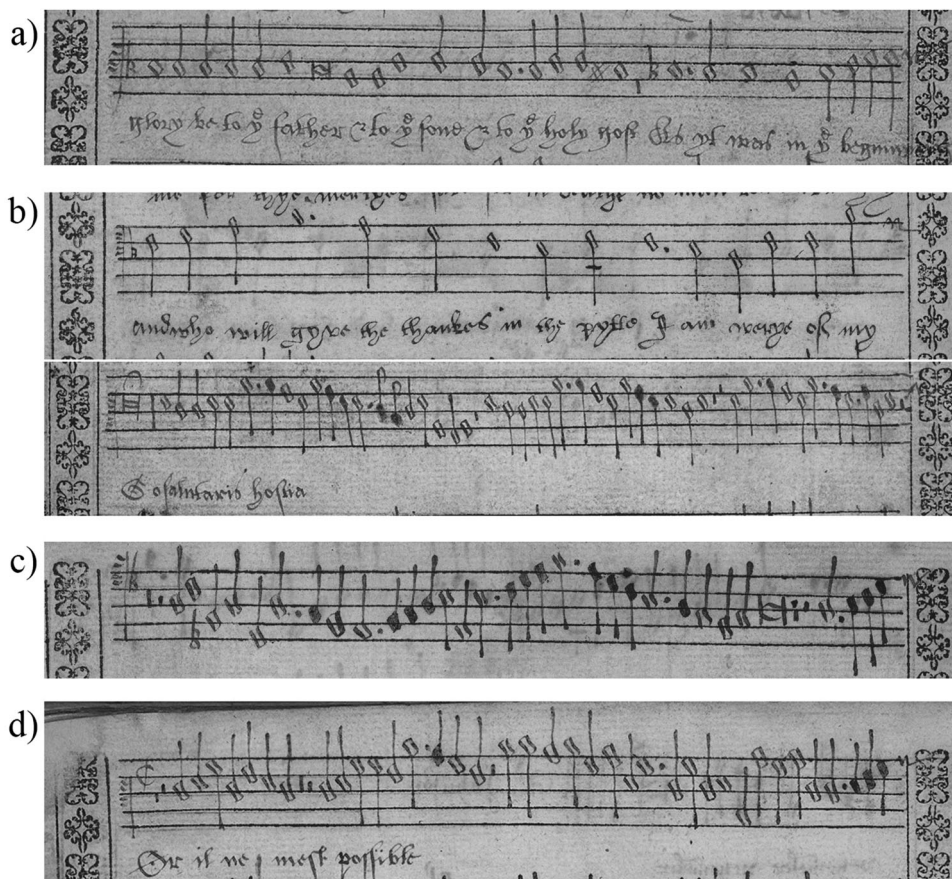 a)
glory be to yͤ father & to yͤ sone & to yͤ holy gost As yt was in yͤ beginnyng
b)
me for thye
and who will gyve the thankes in the pytte I am werye of my
O salutaris hostia
c)
d)
Or il ne mest possible